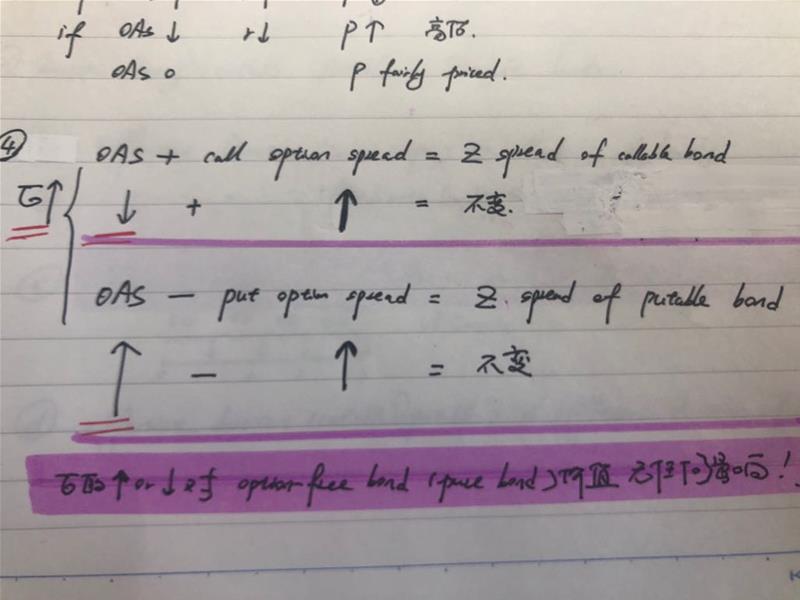 if OAS ↓ r↓ P↑ 高估.
OAS 0 P fairly priced.
④ OAS + call option spread = Z spread of callable bond
σ↑ ↓ + ↑ = 不变.
OAS — put option spread = Z spread of putable bond
↑ — ↑ = 不变
σ的↑or↓对于 option free bond (pure bond) 价值 无任何影响!